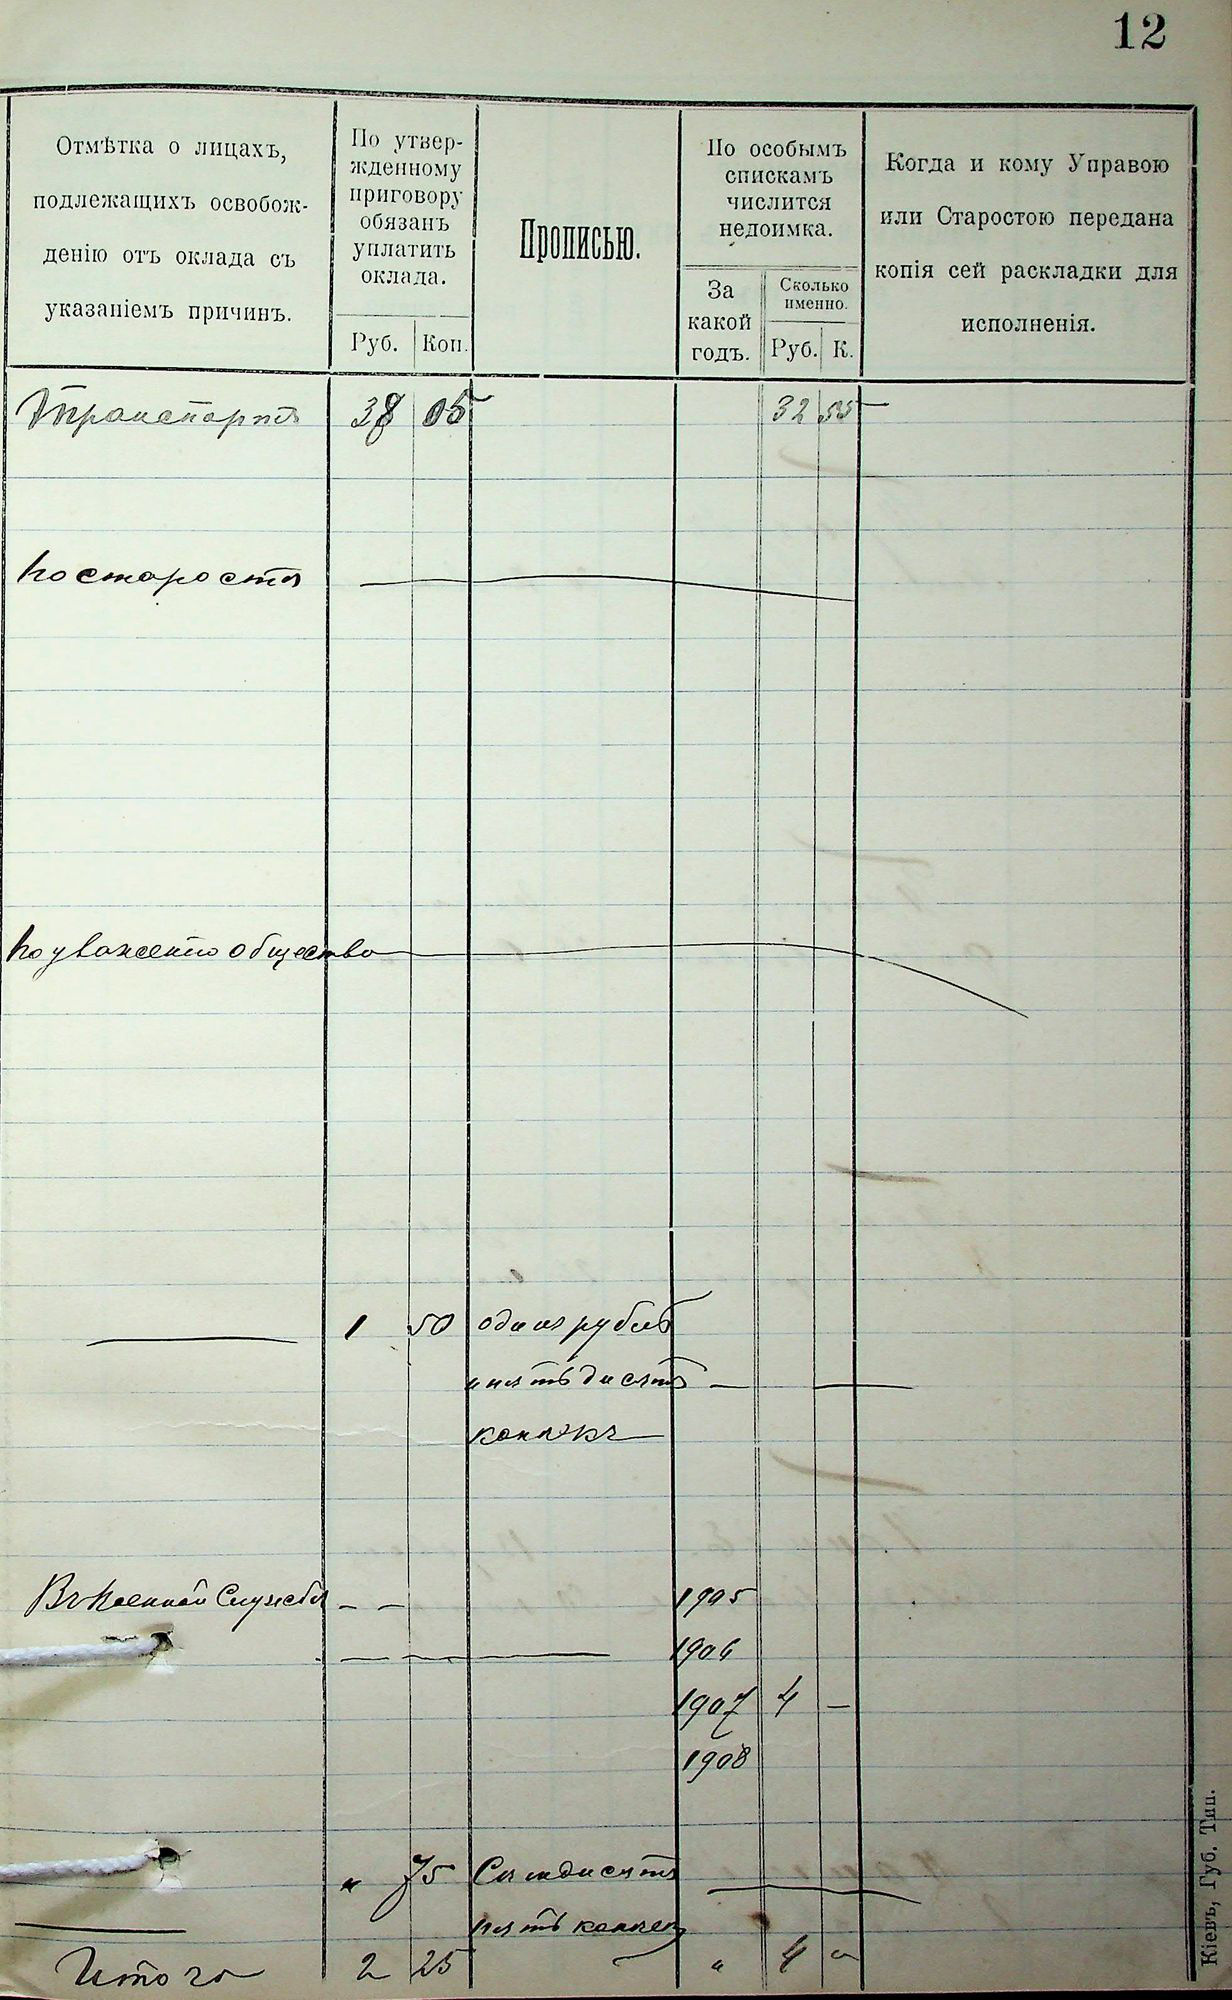 12
Отмѣтка о лицахъ,
подлежащихъ освобож-
денію отъ оклада съ
указаніемъ причинъ.
По утвер-
жденному
приговору
обязанъ
уплатить
оклада.
Руб. Коп.
Прописью.
По особымъ
спискамъ
числится
недоимка.
За
какой
годъ.
Сколько
именно.
Руб. К.
Когда и кому Управою
или Старостою передана
копія сей раскладки для
исполненія.
Транспортъ 38 05 32 55
по старости —
по уваженію общества —
— 1 50 одинъ рубль
и пятьдесятъ — —
копѣкъ —
Въ военной службѣ — — 1905
— — — 1906
1907 4 —
1908
" 75 Семдисятъ
— пять копеек —
Итого 2 25 — " 4 "
Кіевъ, Губ. Тип.